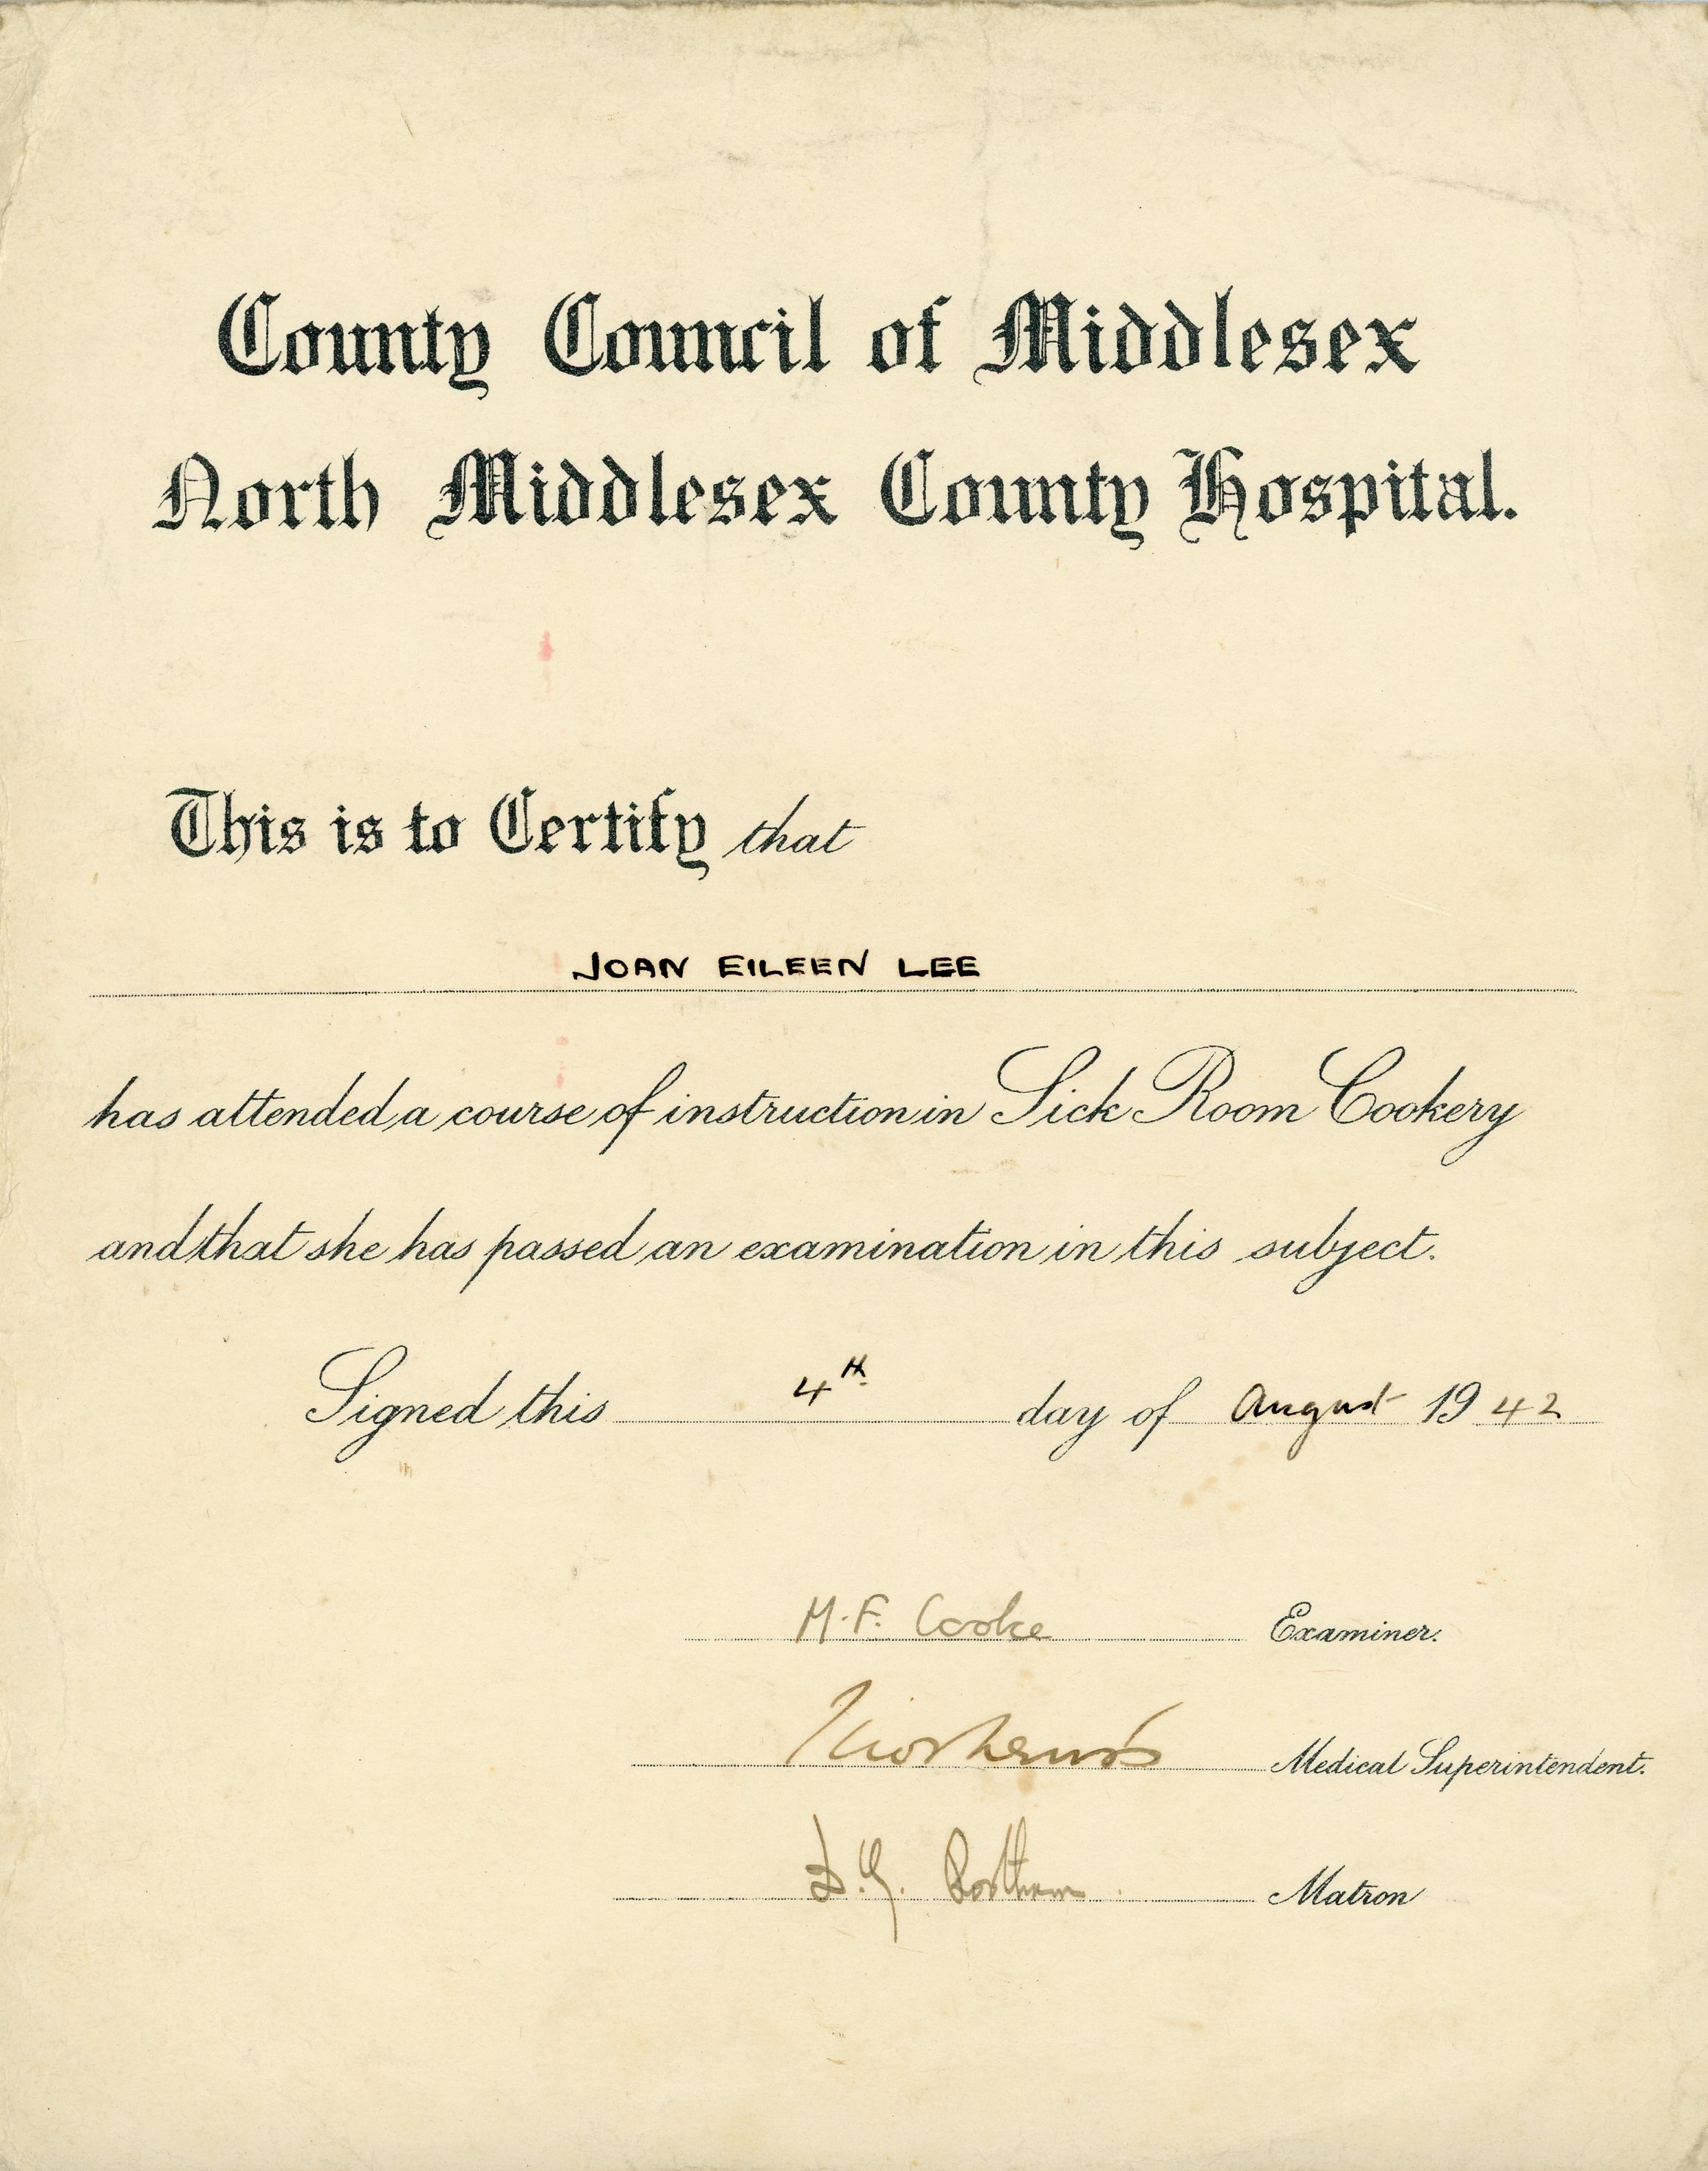 County Council of Middlesex
North Middlesex County Hospital.
This is to Certify that
JOAN EILEEN LEE
has attended a course of instruction in Sick Room Cookery
and that she has passed an examination in this subject.
Signed this 4th day of August 1942
M.F. Cooke Examiner.
Medical Superintendent.
Matron